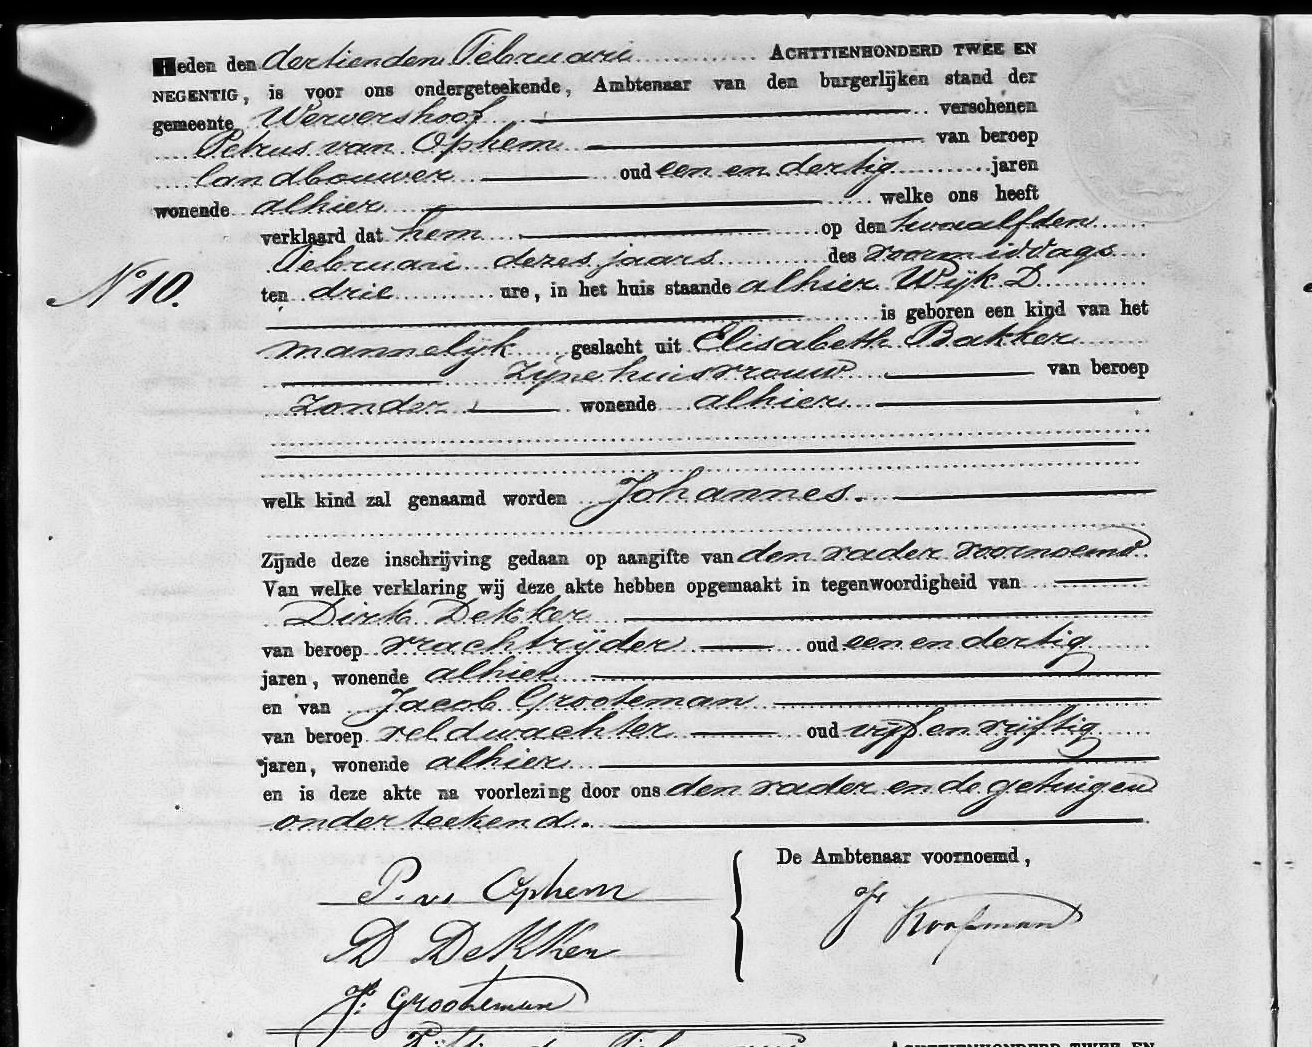 Heden den dertienden Februari ACHTTIENHONDERD TWEE EN
NEGENTIG, is voor ons ondergeteekende, Ambtenaar van den burgerlijken stand der
gemeente Wervershoof verschenen
Petrus van Ophem van beroep
landbouwer oud een en dertig jaren
wonende alhier welke ons heeft
verklaard dat hem op den twaalfden
Februari dezes jaars des voormiddags
No 10.
ten drie ure, in het huis staande alhier Wijk D
is geboren een kind van het
mannelijk geslacht uit Elisabeth Bakker
zijne huisvrouw van beroep
zonder wonende alhier
welk kind zal genaamd worden Johannes.
Zijnde deze inschrijving gedaan op aangifte van den vader voornoemd.
Van welke verklaring wij deze akte hebben opgemaakt in tegenwoordigheid van
Dirk Dekker
van beroep vrachtrijder oud een en dertig
jaren, wonende alhier
en van Jacob Grooteman
van beroep veldwachter oud vijf en vijftig
jaren, wonende alhier
en is deze akte na voorlezing door ons den vader en de getuigen
onderteekend.
De Ambtenaar voornoemd,
P. v. Ophem
Koopman
D Dekker
Js. Grooteman
ACHTTIENHONDERD TWEE EN